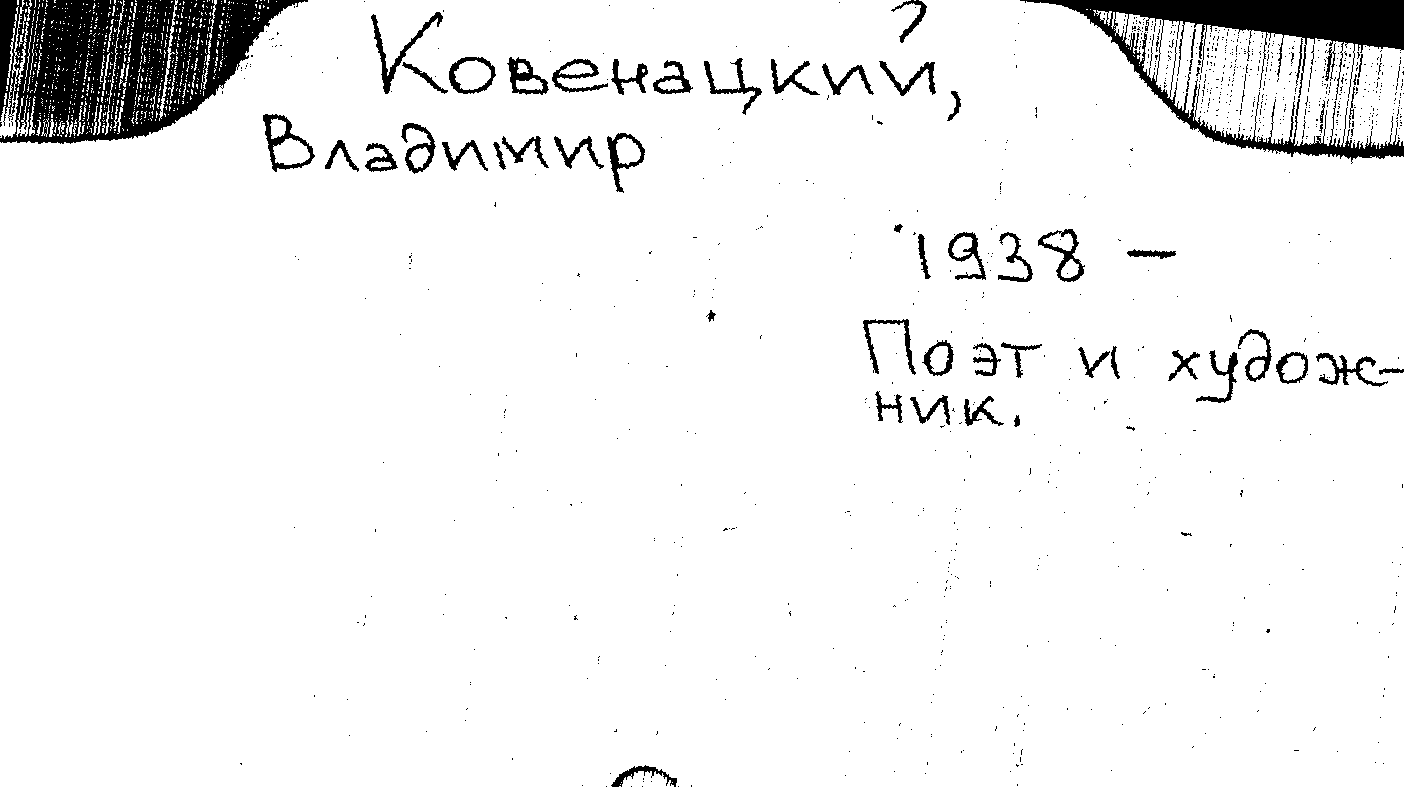 Ковенацкий,
Владимир
1938 –
Поэт и худож-
ник.